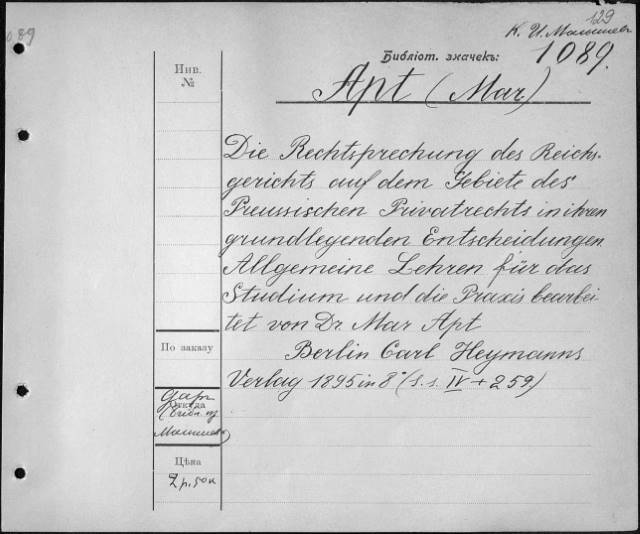 129
К. И. Малышев
1089
Библіот. значекъ:
1089.
Инв.
№
Apt (Mar)
Die Rechtsprechung des Reichs-
gerichts auf dem Gebiete des
Preussischen Privatrechts in ihren
grundlegenden Entscheidungen
Allgemeine Lehren für das
Studium und die Praxis bearbei
tet von Dr. Mar Apt
Berlin Carl Heymanns
Verlag 1895 in 8° (S. s. IV + 259)
По заказу
даръ
Откуда
Малышева)
Цѣна
2 р. 50 к